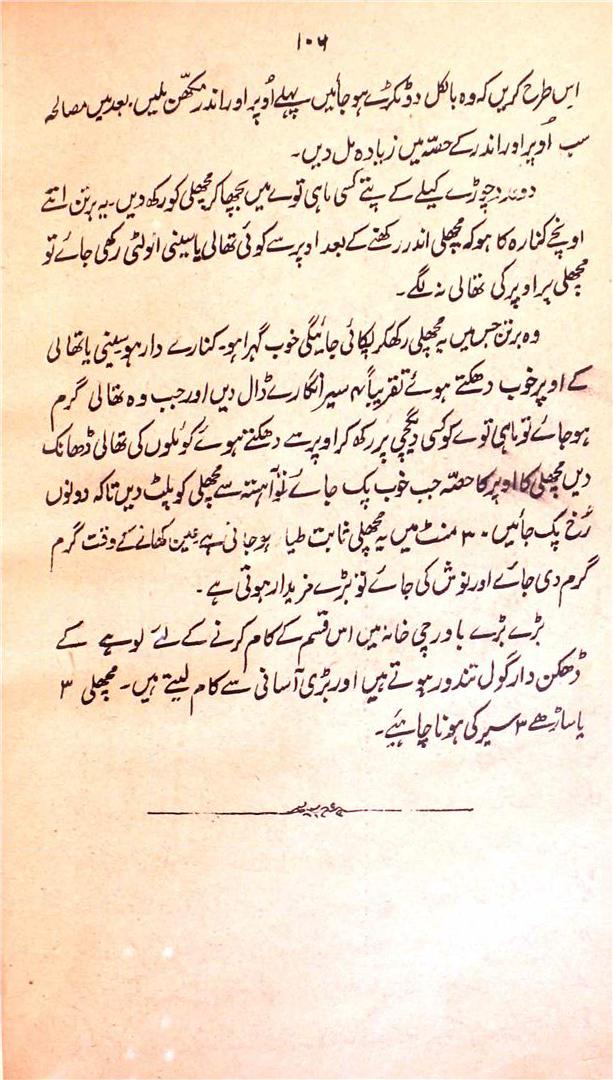 ۱۰۶
اس طرح کریں کہ وہ بالکل دو ٹکڑے ہو جائیں پہلے اُوپر اور اندر مکھّن ملیں، بعد میں مصالحہ
سب اُوپر اور اندر کے حصّہ میں زیادہ مل دیں۔
دو عدد چوڑے کیلے کے پتے کسی ماہی توے میں بچھا کر مچھلی کو رکھ دیں۔ یہ برتن اتنے
اونچے کنارہ کا ہو کہ مچھلی اندر رکھنے کے بعد اوپر سے کوئی تھالی یا سینی اُولٹی رکھی جائے تو
مچھلی پر اوپر کی تھالی نہ لگے۔
وہ برتن جس میں یہ مچھلی رکھ کر پکائی جائیگی خوب گہرا ہو۔ کنارے دار ہو سینی یا تھالی
کے اوپر خوب دھکتے ہوئے تقریباً ۴ سیر انگارے ڈال دیں اور جب وہ تھالی گرم
ہو جائے تو ماہی توے کو کسی دیگچی پر رکھ کر اوپر سے دھکتے ہوئے کوئلوں کی تھالی ڈھانک
دیں مچھلی کا اوپر کا حصّہ جب خوب پک جائے تو آہستہ سے مچھلی کو پلٹ دیں تاکہ دونوں
رُخ پک جائیں۔ ۳۰ منٹ میں یہ مچھلی ثابت طیا ہو جاتی ہے عین کھانے کے وقت گرم
گرم دی جائے اور نوش کی جائے تو بڑے مزیدار ہوتی ہے۔
بڑے بڑے باورچی خانہ میں اس قسم کے کام کرنے کے لئے لوہے کے
ڈھکن دار گول تندور ہوتے ہیں اور بڑی آسانی سے کام لیتے ہیں۔ مچھلی ۳
یا ساڑھے ۳ سیر کی ہونا چاہئیے۔